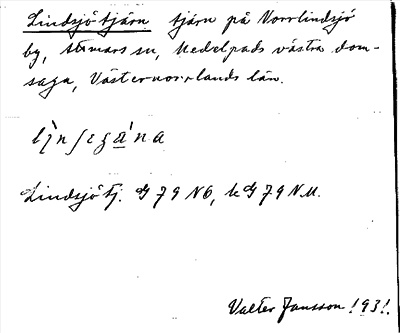 Lindsjötjärn tjärn på Norrlindsjö
by, Stömars sn, Medelpads västra dom-
saga, Västernorrlands län.
Lindsjötj. G 79 NÖ, k G 79 N.U.
Valter Jansson 1931.